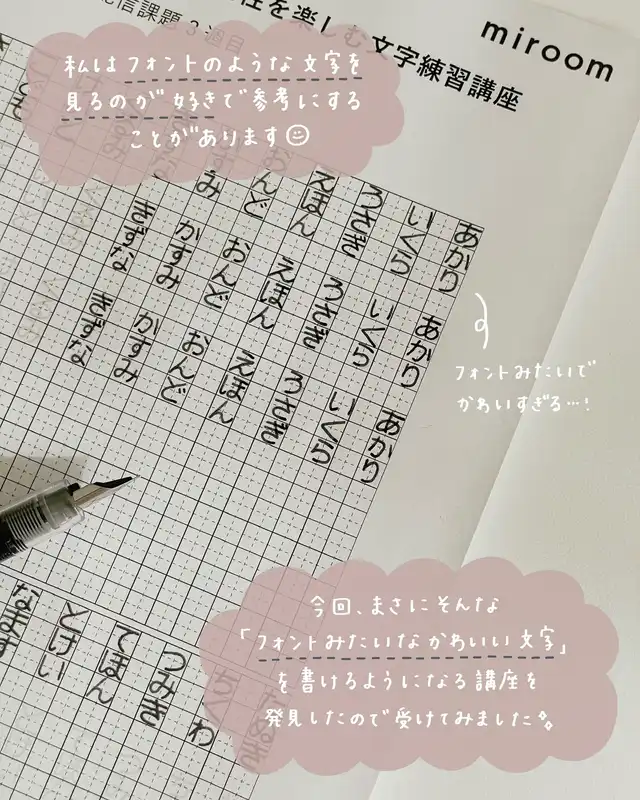 miroom
性を楽しむ文字練習講座
通信課題 3週目
私はフォントのような文字を
見るのが好きで参考にする
ことがあります
あかり
いくら
うさぎ
えほん
おんど
あかり
いくら
うさぎ
えほん
おんど
かすみ
きずな
あかり
いくら
うさぎ
えほん
おんど
かすみ
きずな
フォントみたいで
かわいすぎる…!
つみき
てほん
とけい
なます
今回、まさにそんな
「フォントみたいなかわいい文字」
を書けるようになる講座を
発見したので受けてみました